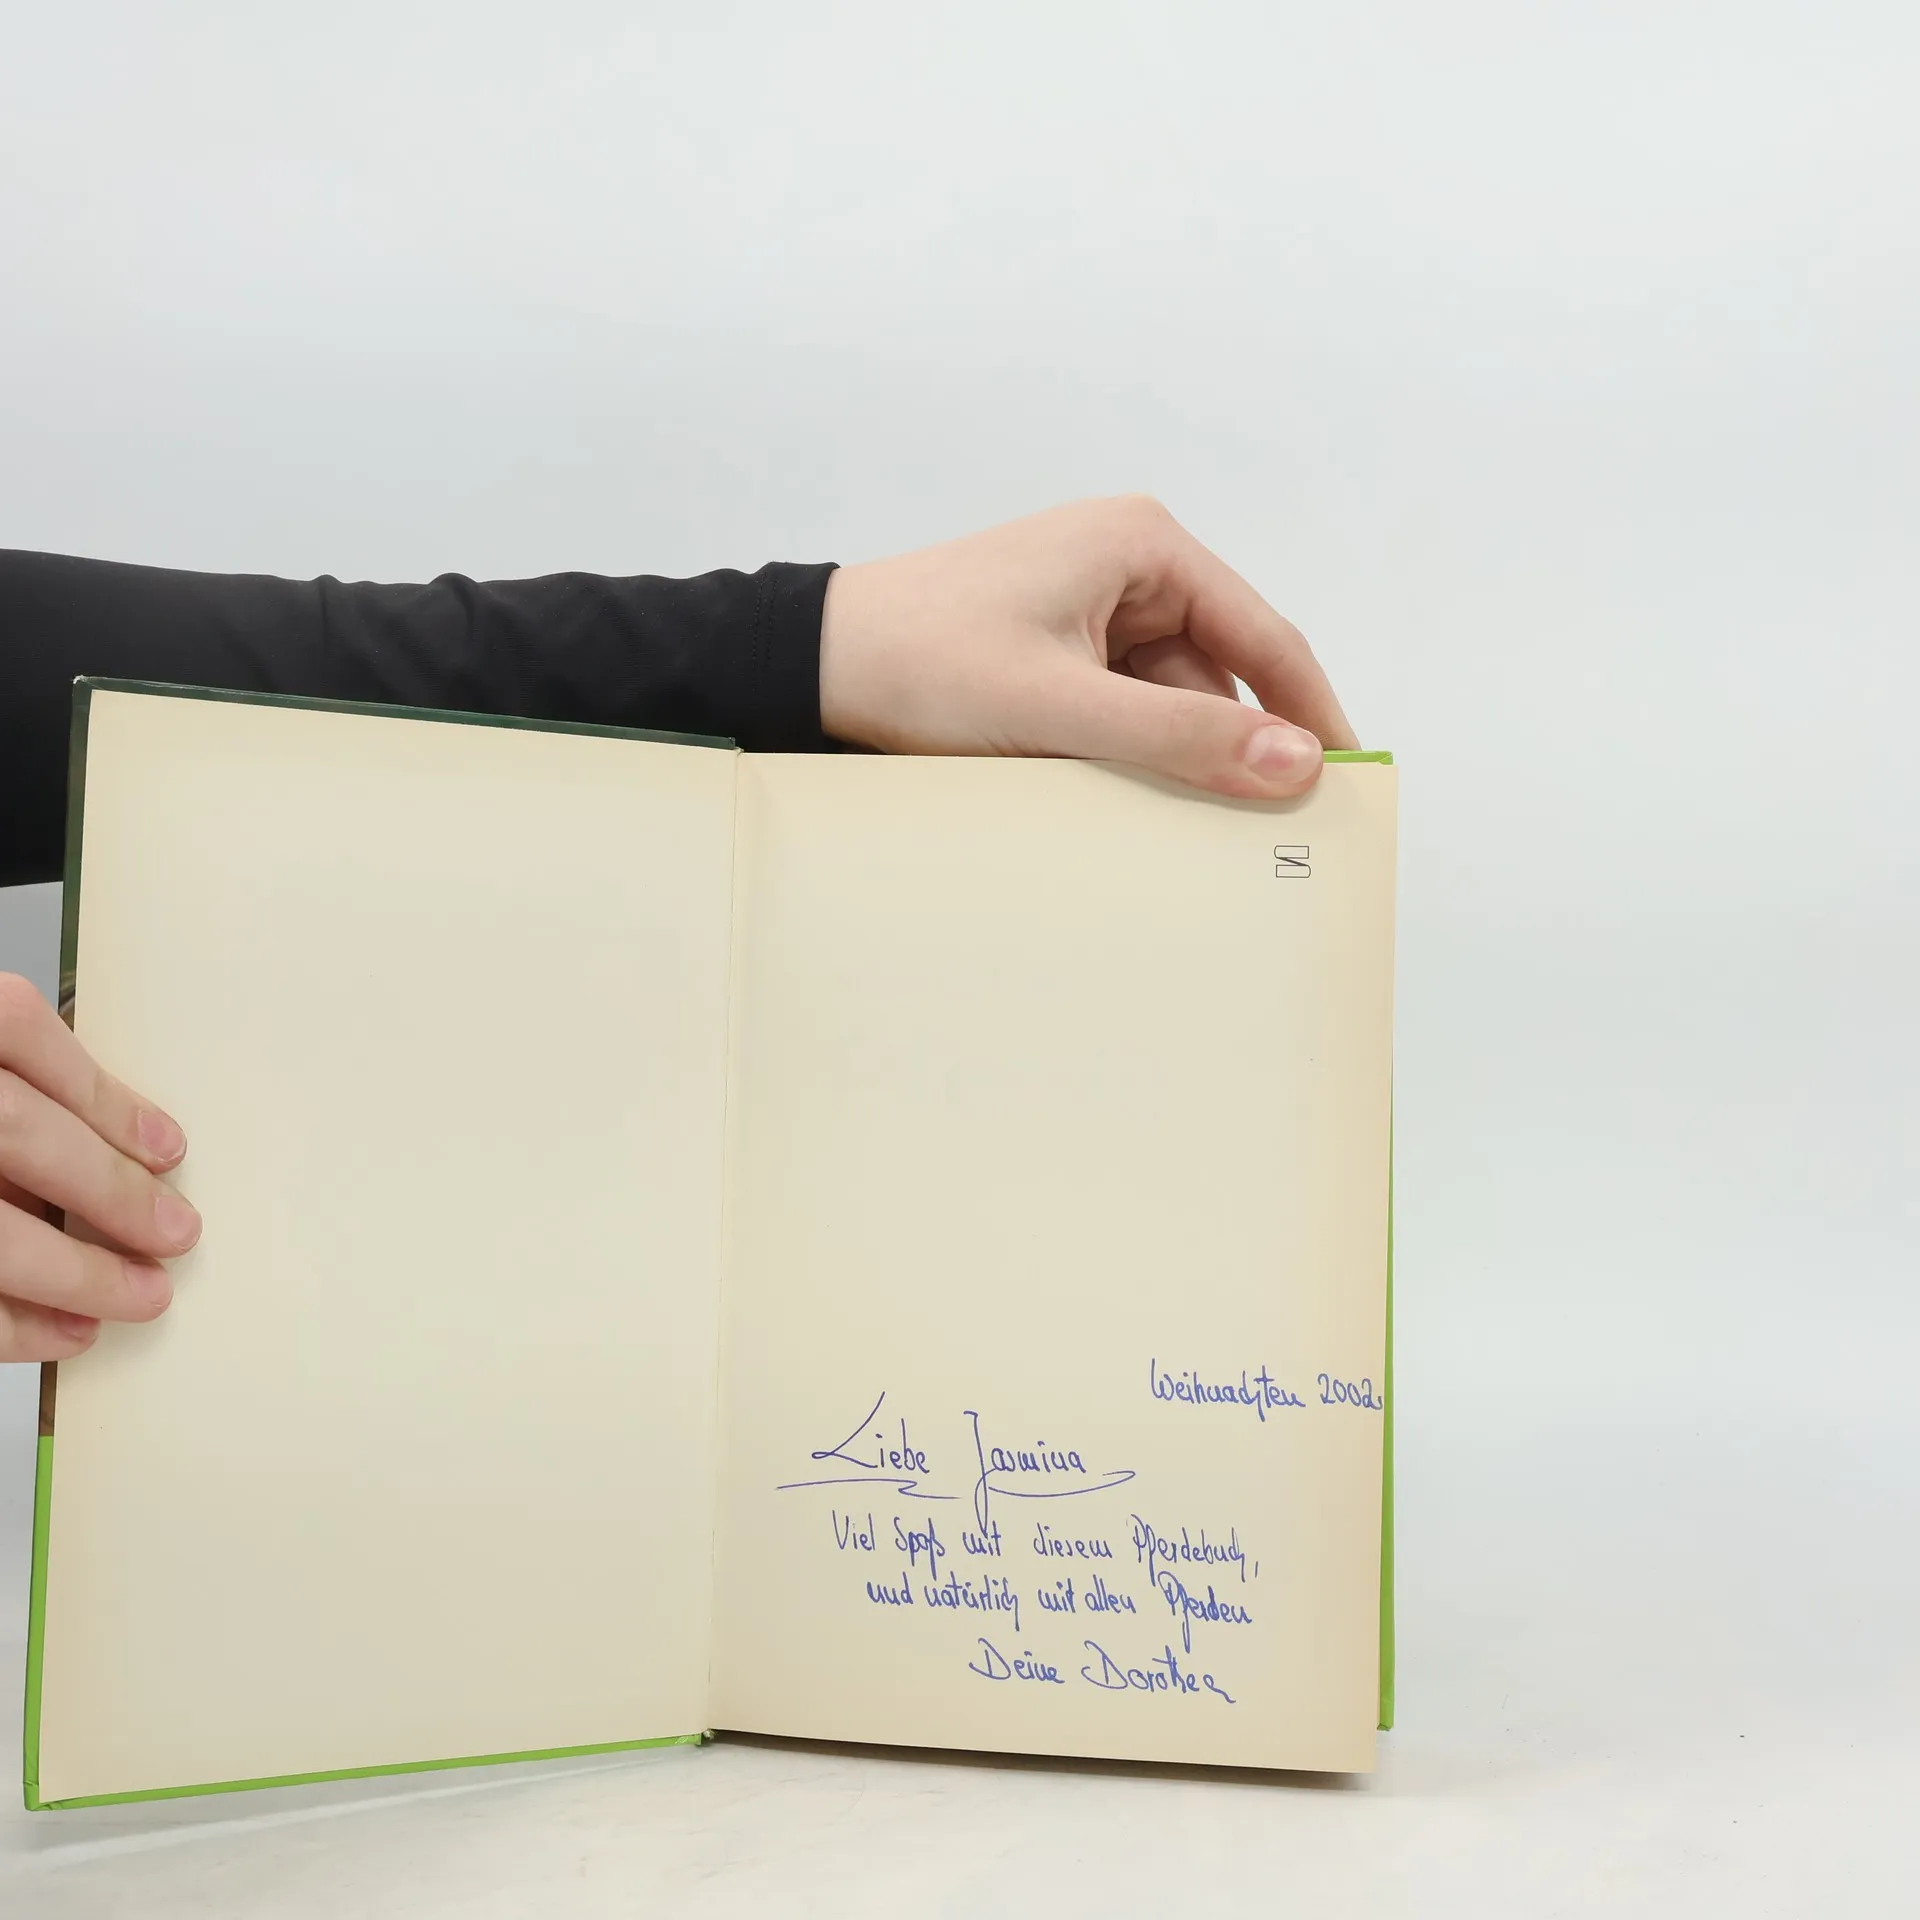 Weihnachten 2002
Liebe Jasmina
Viel Spaß mit diesem Pferdebuch,
und natürlich mit allen Pferden
Deine Dorothea